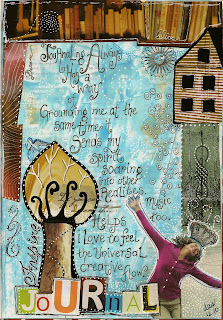 Journaling Always
lifts me
in a
way
of
Grounding me at the
same time it
sends my
spirit
soaring
into other
Realities.
music
too.
HELPS
I love to feel
the Universal
creative
Flow!
JOURNAL